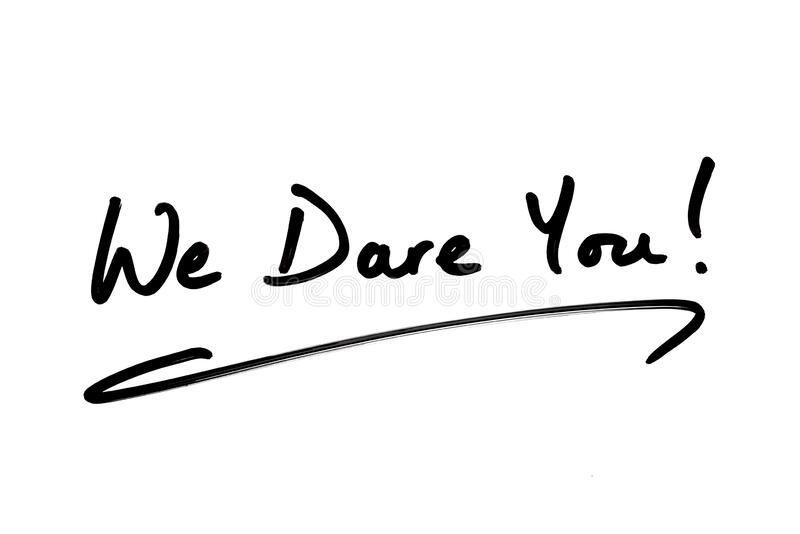 We Dare You!
dreamstime